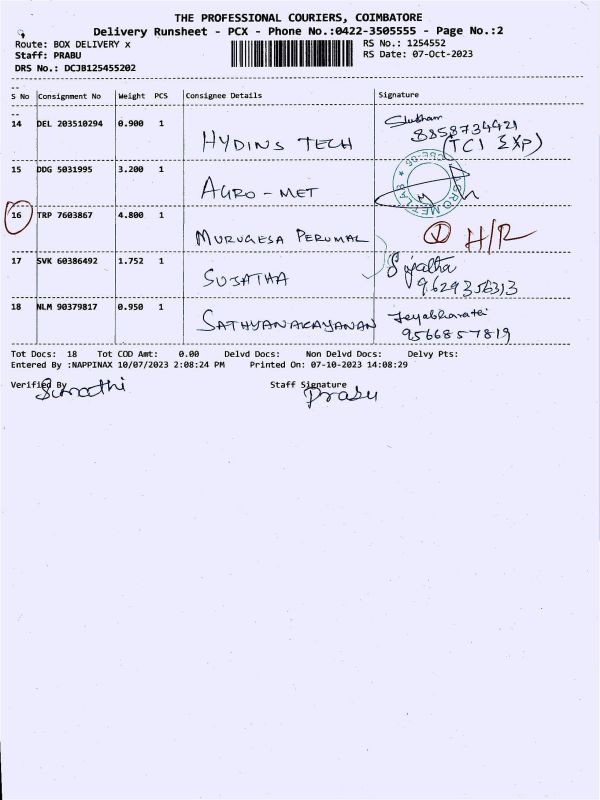 THE PROFESSIONAL COURIERS, COIMBATORE
Delivery Runsheet - PCX - Phone No.:0422-3505555 - Page No.:2
Route: BOX DELIVERY x RS No.: 1254552
Staff: PRABU RS Date: 07-Oct-2023
DRS No.: DCJB125455202
S No Consignment No Weight PCS Consignee Details Signature
14 DEL 203510294 0.900 1 HYDINS TECH Shubham
8858734421
(TCI EXP)
15 DDG 5031995 3.200 1 AGRO-MET
16 TRP 7603867 4.800 1 MURUGESA PERUMAL H/R
17 SVK 60386492 1.752 1 SUJATHA Sujatha
9629356313
18 NLM 90379817 0.950 1 SATHYANARAYANAN Jeyabharathi
9566857819
Tot Docs: 18 Tot COD Amt: 0.00 Delvd Docs: Non Delvd Docs: Delvy Pts:
Entered By :NAPPINAX 10/07/2023 2:08:24 PM Printed On: 07-10-2023 14:08:29
Verified By Staff Signature
Prabu